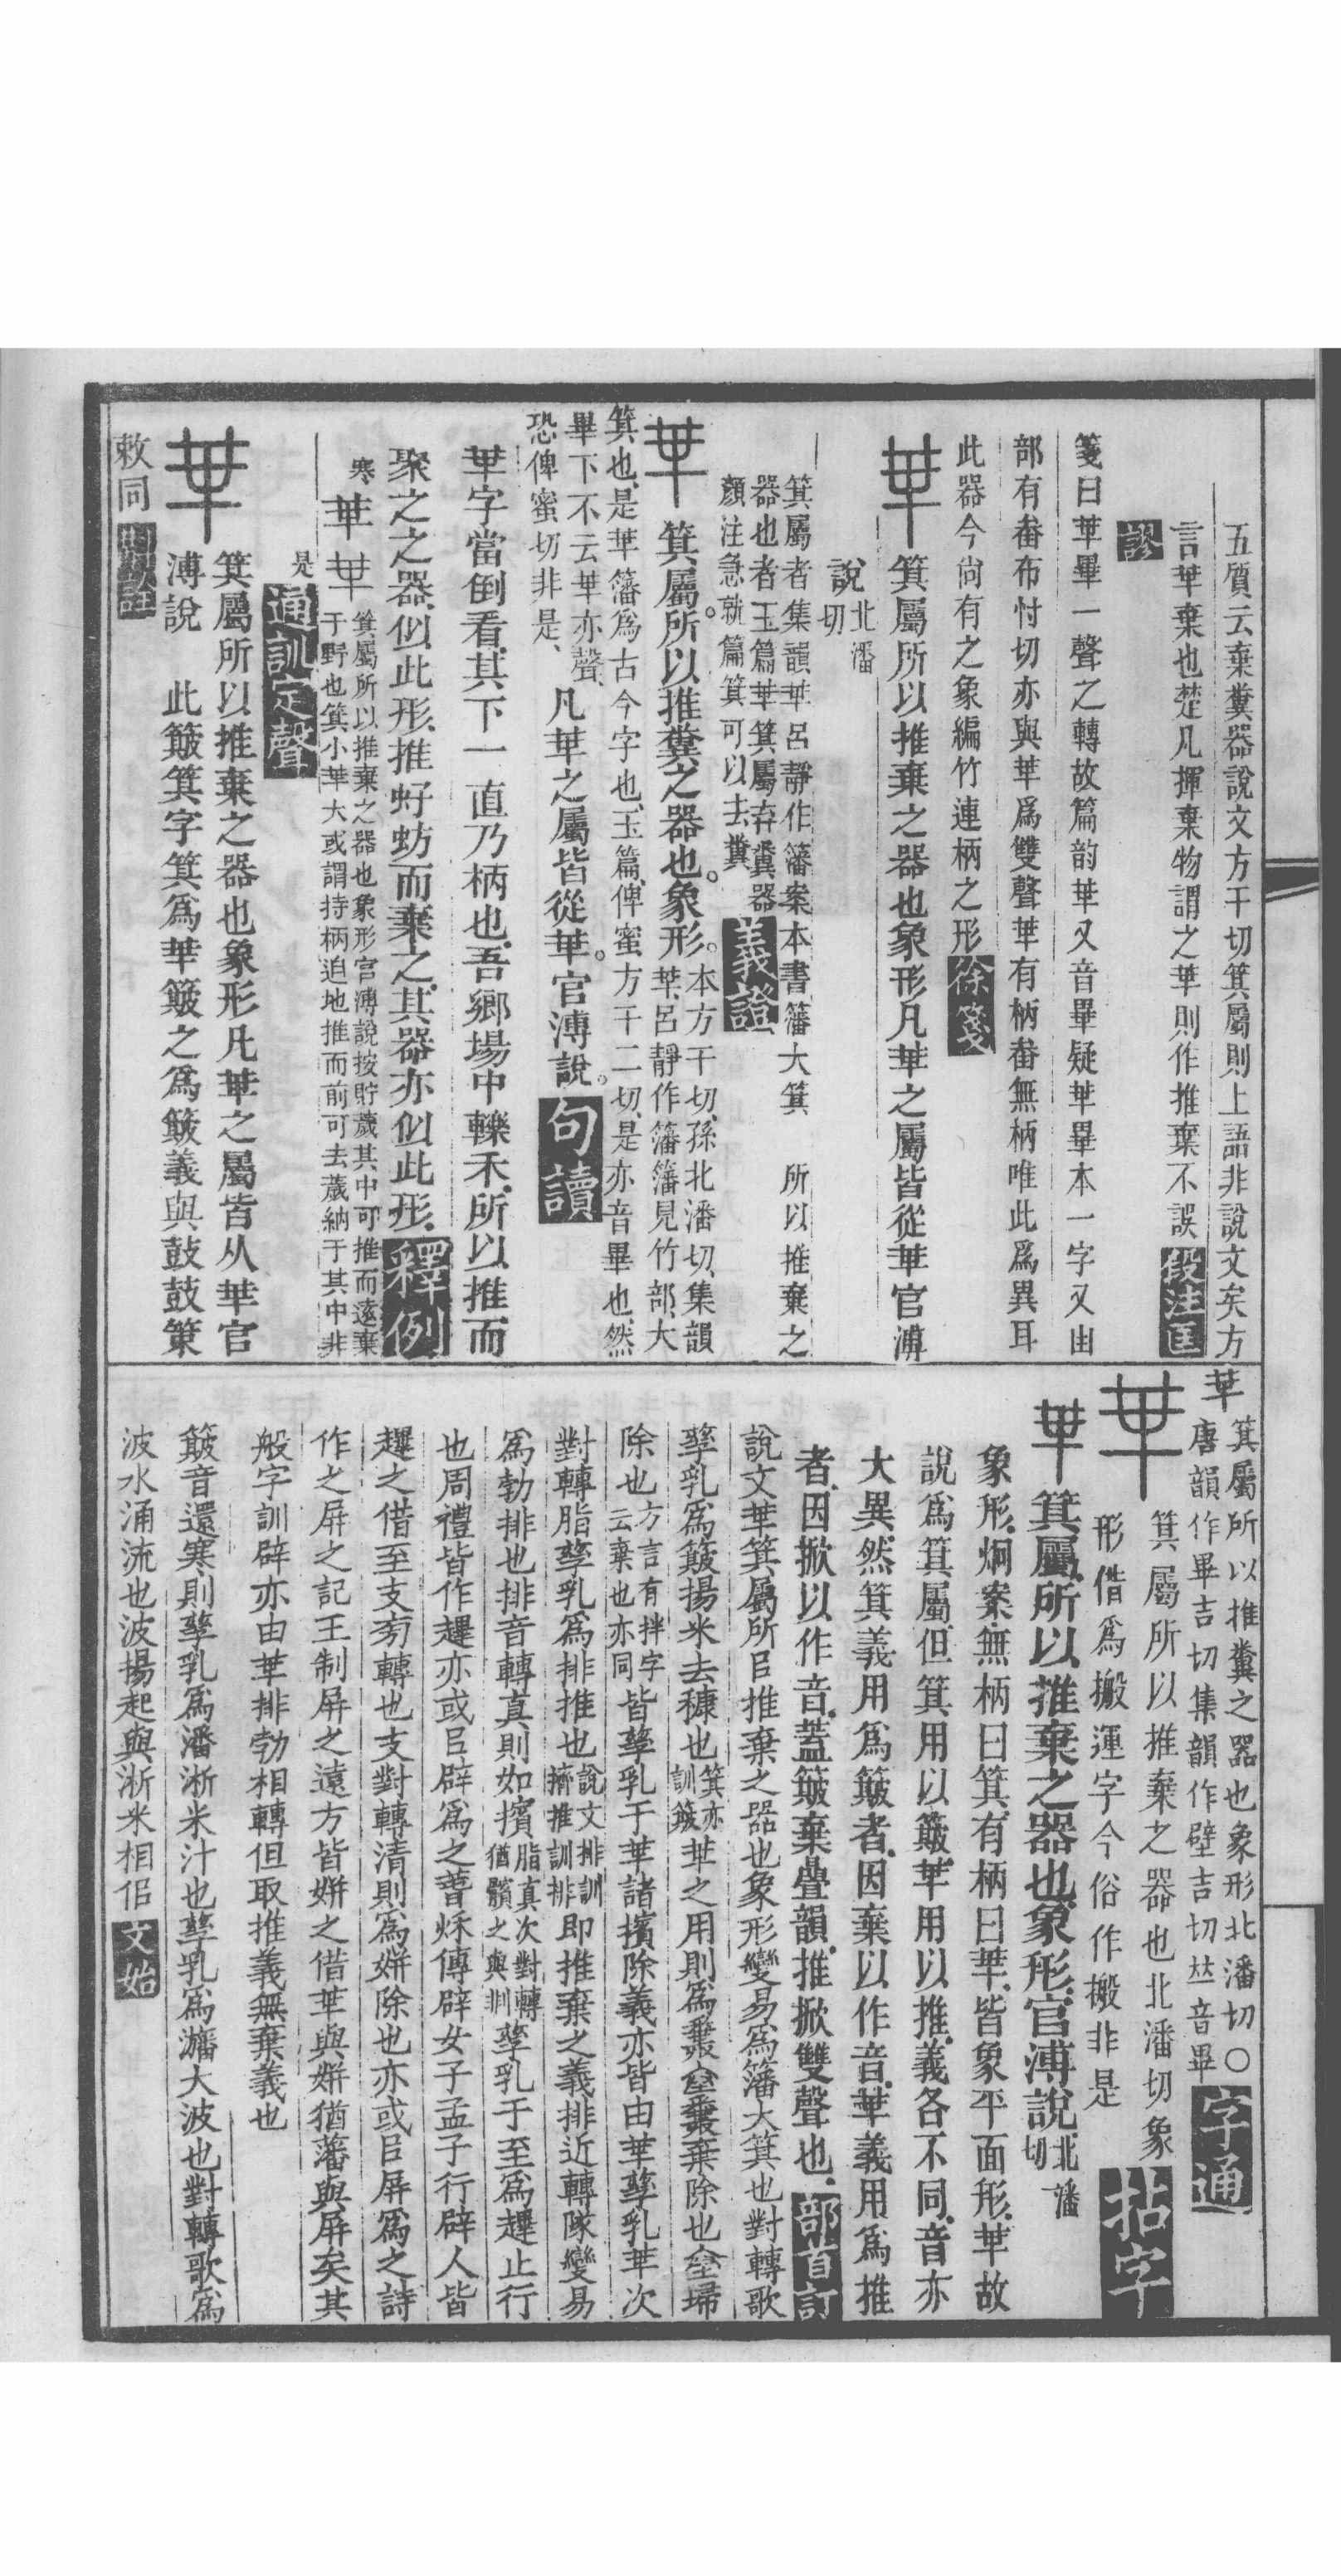 五質云棄糞器說文方干切箕屬則上語非說文矣方
言華棄也楚凡揮棄物謂之華則作推棄不誤段注匡
謬
箋曰華畢一聲之轉故篇韵華又音畢疑華畢本一字又由
部有畚布忖切亦與華爲雙聲華有柄畚無柄唯此爲異耳
此器今尚有之象編竹連柄之形徐箋
𠦒箕屬所以推棄之器也象形凡𠦒之屬皆從𠦒官溥
說北潘
切
箕屬者集韻𠦒呂靜作籓案本書籓大箕 所以推棄之
器也者玉篇𠦒箕屬弃糞器
顏注急就篇箕可以去糞義證
𠦒箕屬。所以推糞之器也。象形。本方干切、孫北潘切、集韻
𠦒、呂靜作籓籓見竹部、大
箕也、是𠦒籓爲古今字也、玉篇、俾蜜方干二切、是亦音畢也、然
畢下不云𠦒亦聲、
恐俾蜜切非是、凡𠦒之屬皆從𠦒。官溥說。句讀
𠦒字當倒看、其下一直乃柄也、吾鄉場中轢禾、所以推而
聚之之器、似此形、推虸蚄而棄之、其器亦似此形、釋例
寒𠦒𠦒箕屬所以推棄之器也象形官溥說按貯薉其中可推而遠棄
于野也箕小𠦒大或謂持柄迫地推而前可去薉納于其中非
是通訓定聲
𠦒箕屬所以推棄之器也象形凡𠦒之屬皆从𠦒官
溥說 此簸箕字箕爲𠦒簸之爲簸義與鼓鼓策
敕同
𠦒箕屬所以推糞之器也象形北潘切〇
唐韻作畢吉切集韻作壁吉切𠀤音畢字通
𠦒箕屬所以推棄之器也北潘切象
形借爲搬運字今俗作搬非是拈字
𠦒箕屬、所以推棄之器也、象形、官溥說北潘
切
象形、炯案、無柄曰箕、有柄曰𠦒、皆象平面形、𠦒故
說爲箕屬、但箕用以簸、𠦒用以推、義各不同、音亦
大異、然箕義用爲簸者、因棄以作音、𠦒義用爲推
者、因掀以作音、蓋簸棄疊韻、推掀雙聲也、部首訂
說文𠦒箕屬所㠯推棄之器也象形變易爲籓大箕也對轉歌
孳乳爲簸揚米去穅也箕亦
訓簸𠦒之用則爲糞坌糞棄除也坌埽
除也方言有拌字
云棄也亦同皆孳乳于𠦒諸擯除義亦皆由𠦒孳乳𠦒次
對轉脂孳乳爲排推也說文排訓
擠推訓排即推棄之義排近轉隊變易
爲勃排也排音轉真則如擯脂真次對轉
猶髕之與剕孳乳于至爲趩止行
也周禮皆作趩亦或㠯辟爲之蓍秌傳辟女子孟子行辟人皆
趩之借至支旁轉也支對轉清則爲姘除也亦或㠯屏爲之詩
作之屏之記王制屏之遠方皆姘之借𠦒與姘猶藩與屏矣其
般字訓辟亦由𠦒排勃相轉但取推義無棄義也
簸音還寒則孳乳爲潘淅米汁也孳乳爲㶄大波也對轉歌爲
波水涌流也波揚起與淅米相佀文始